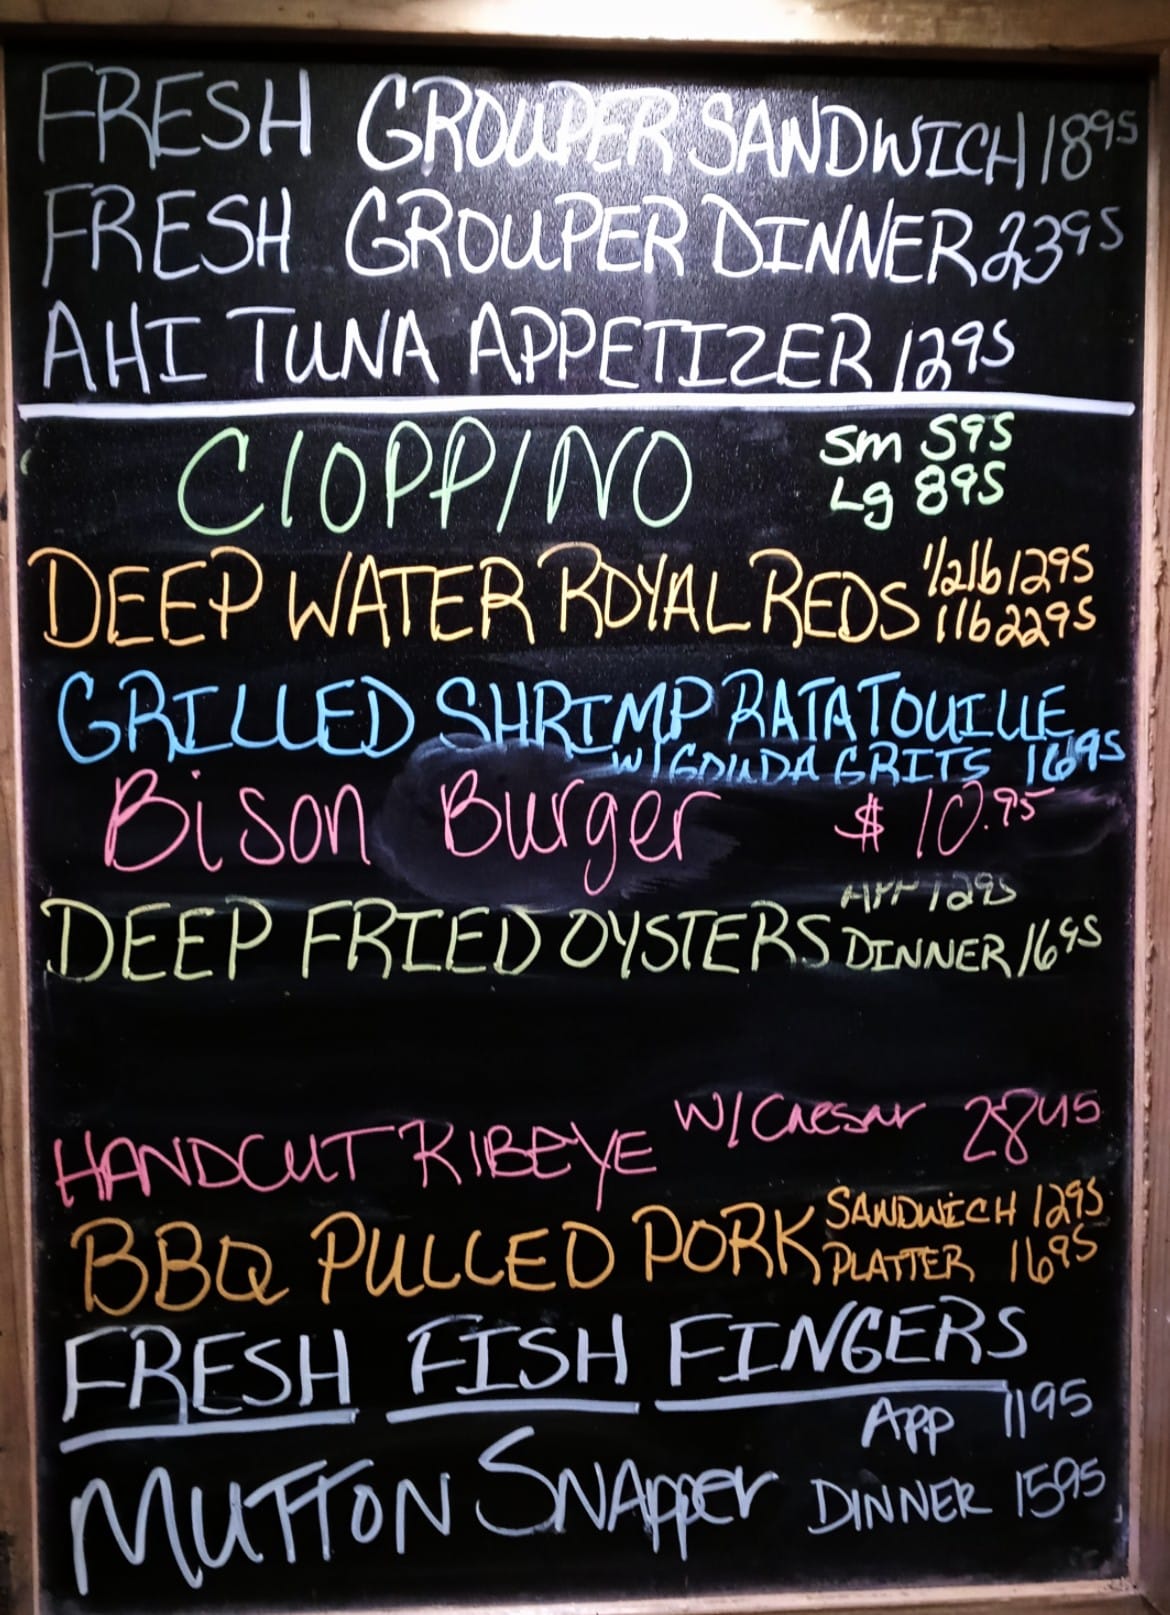 FRESH GROUPER SANDWICH 1895
FRESH GROUPER DINNER 2395
AHI TUNA APPETIZER 1295
CIOPPINO Sm 595
Lg 895
DEEP WATER ROYAL REDS 1/2lb 1295
1lb 2295
GRILLED SHRIMP RATATOUILLE
W/GOUDA GRITS 1695
Bison Burger $ 10.95
DEEP FRIED OYSTERS APP 1295
DINNER 1695
HANDCUT RIBEYE W/Caesar 2895
BBQ PULLED PORK SANDWICH 1295
PLATTER 1695
FRESH FISH FINGERS
APP 1195
MUTTON SNAPPER DINNER 1595